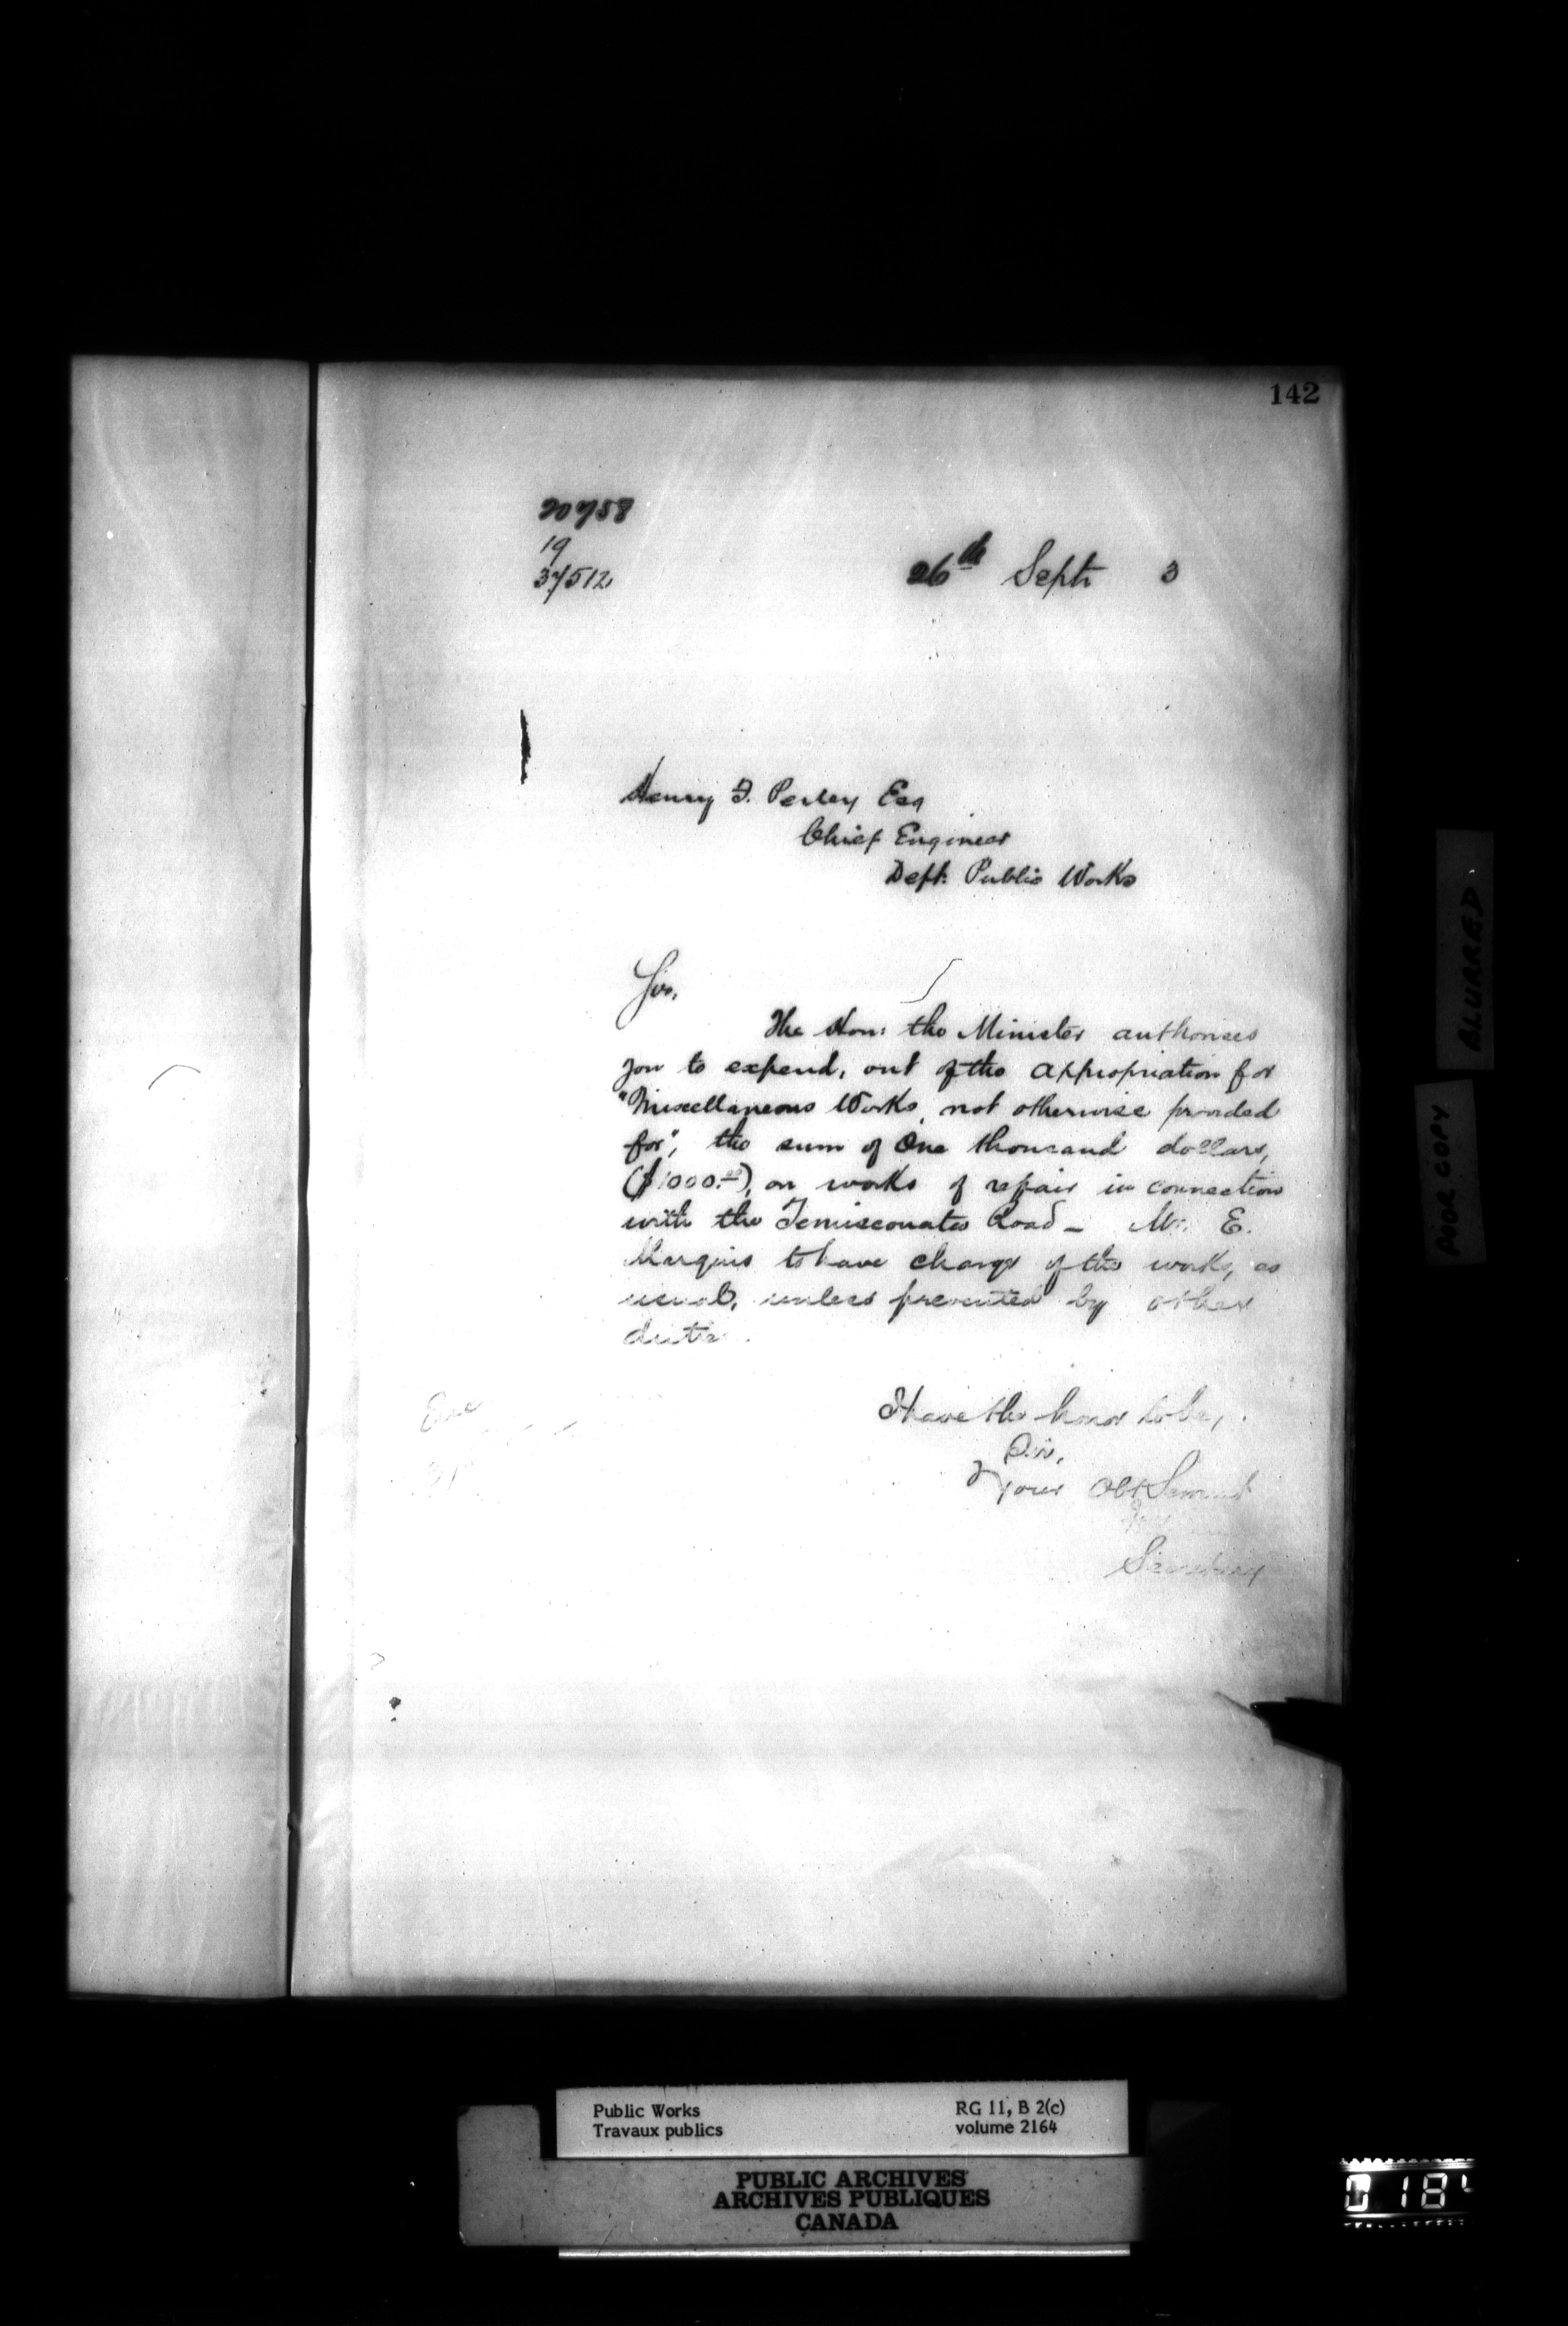 142
20758
19
37512
26th Sept 3
Henry F. Perley Esq
Chief Engineer
Dept. Public Works
Sir,
The Hon: the Minister authorises
you to expend, out of the appropriation for
"Miscellaneous Works, not otherwise provided
for", the sum of One thousand dollars,
($1000.00), on works of repair in connection
with the Temiscouata Road – Mr. E.
Marquis to have charge of the works, as
usual, unless prevented by other
duties.
I have the honor to be,
Sir,
Your Obt Servant
Secretary
BLURRED
POOR COPY
Public Works
Travaux publics
RG 11, B 2(c)
volume 2164
PUBLIC ARCHIVES
ARCHIVES PUBLIQUES
CANADA